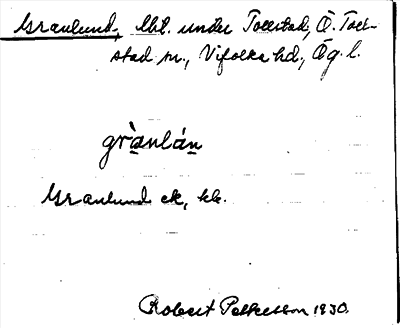 Granlund, lht. under Tollstad, Ö. Toll-
stad sn., Vifolka hd., Ög. l.
grànlán
Granlund ek, hk.
Robert Petterson 1930.